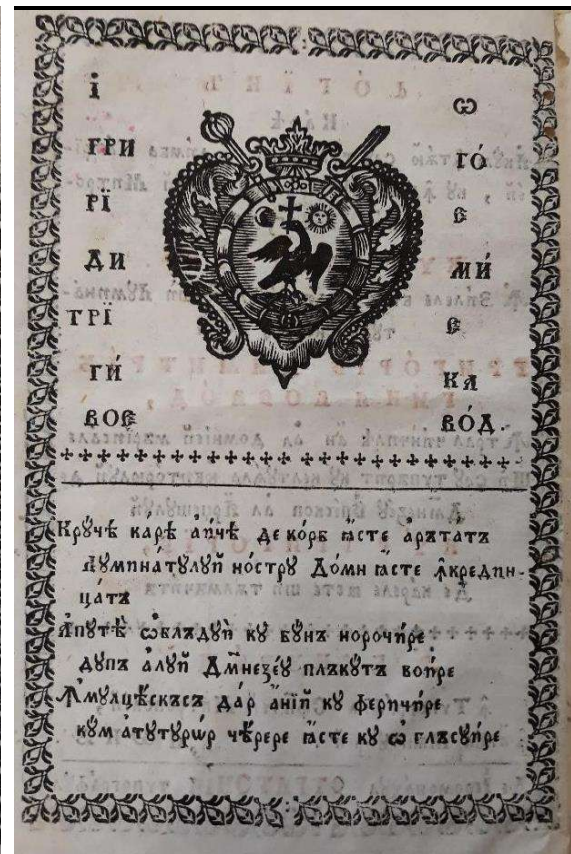 І Ѡ
ГРИ ГО́
РІ Е
ДИ МИ́
ТРЇ Е
ГИ́ КА
ВОЕ ВО́Д.
Крꙋ́чѣ ка́рѣ аи́чѣ де ко́рб ꙗ́сте ара́татъ
Лꙋмина́тꙋлꙋй но́стрꙋ Домн ꙗ́сте ꙟкредин-
ца́тъ
Апꙋтѣ̀ ѡблъдꙋи́ кꙋ бꙋ́нъ норочи́ре
дꙋпъ алꙋ́й Дм҃незе́ꙋ плъкꙋ́тъ вои́ре
Ꙟмꙋлцѣ́скъсъ да́р а́нїй кꙋ феричи́ре
кꙋм атꙋтꙋрѡ́р че́рере ꙗ́сте кꙋ ѡ҆ глъсꙋи́ре